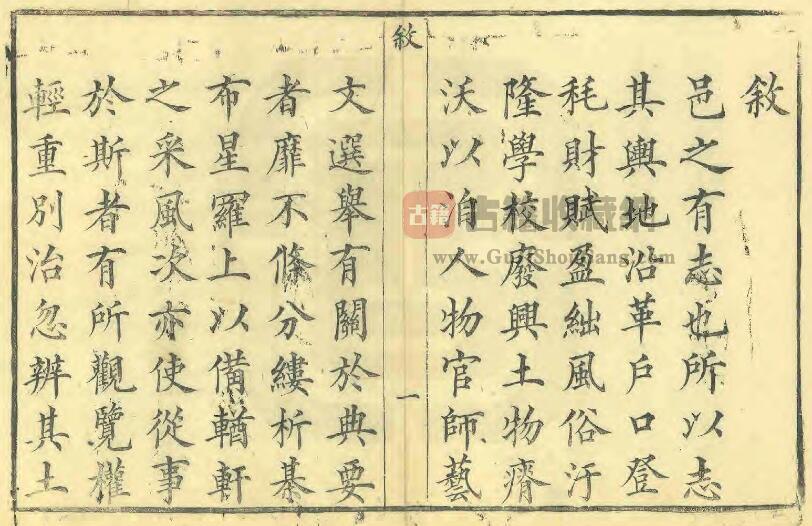 敘
邑之有志也所以志
其輿地沿革戶口登
秏財賦盈絀風俗汙
隆學校廢興土物瘠
沃以洎人物官師藝
敘
一
文選舉有關於典要
者靡不條分縷析棊
布星羅上以備輶軒
之采風次亦使從事
於斯者有所觀覽權
輕重別治忽辨其土
古籍
古籍收藏網
www.GujiShoucang.com